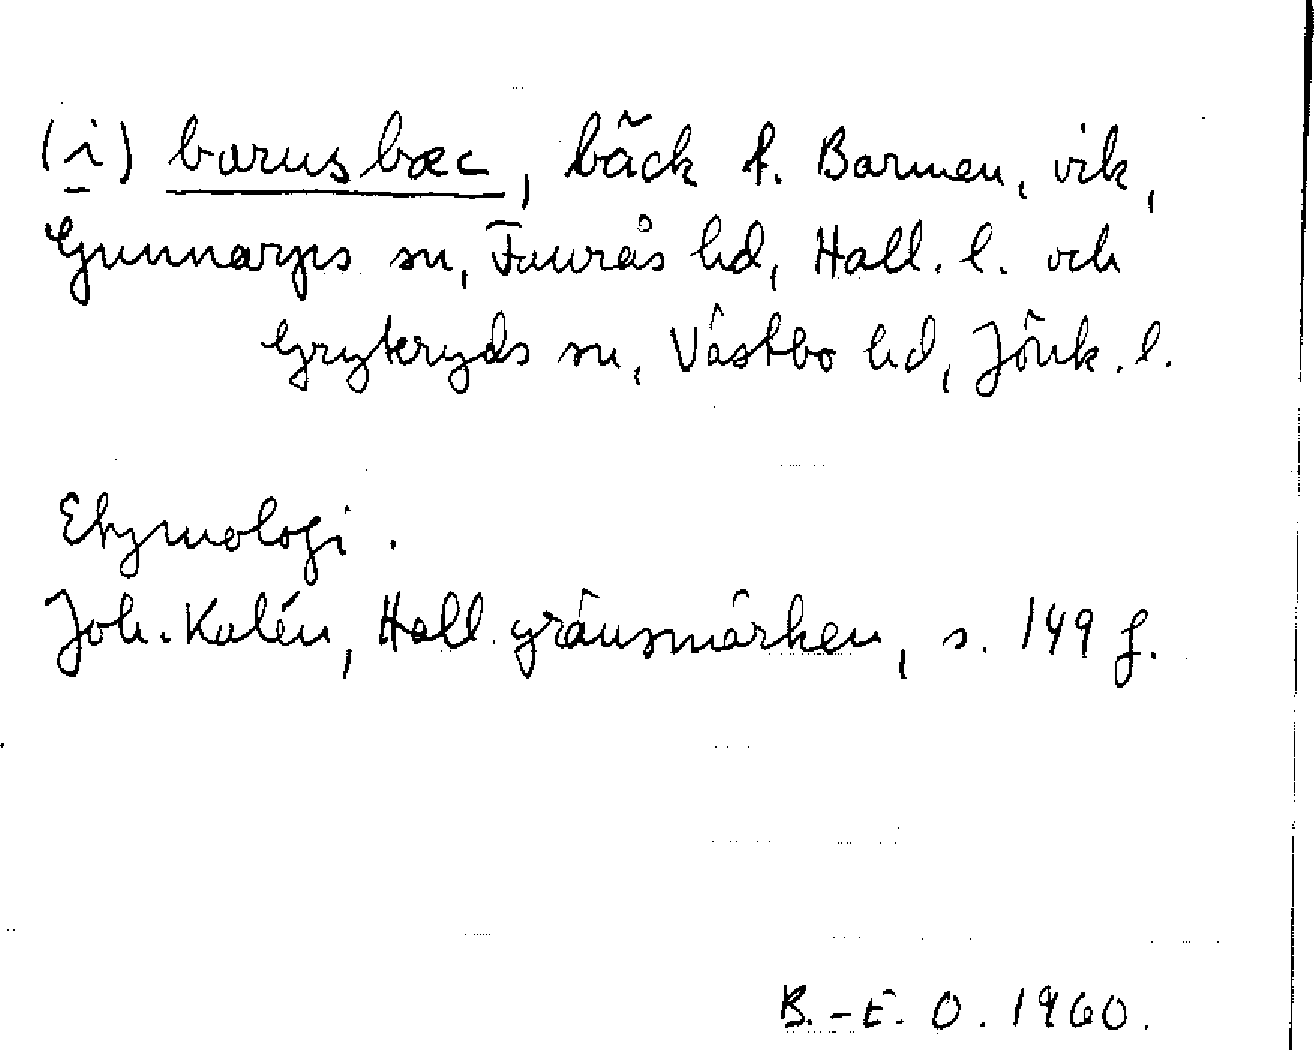 (i) barusbæc, bäck t. Barmen, vik,
Gunnarps sn, Faurås hd, Hall. l. och
Gryteryds sn, Västbo hd, Jönk. l.
Etymologi.
Joh. Kalén, Hall. gränsmärken, s. 149 f.
B.-E. O. 1960.